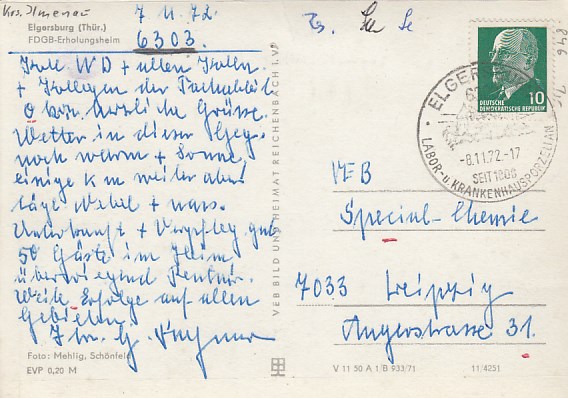 Krs. Ilmenau
7 11. 72
Elgersburg (Thür.)
FDGB-Erholungsheim
6303.
Koll. WD + allen Kolln.
+ Kollegen der Fachabtlg
O bzw. herzliche Grüsse.
Wetter in dieser Geg.
noch warm + Sonne,
einige km weiter aber
Nebel + nass.
Unterkunft + Verpfleg gut
50 Gäste im Heim
überwiegend Rentner.
Weit. Erfolge auf allen
Gebieten.
Ihr. G.
Foto: Mehlig, Schönfeld
EVP 0,20 M
VEB BILD UND HEIMAT REICHENBACH I. V.
DEUTSCHE
DEMOKRATISCHE REPUBLIK
10
ELGERSBURG
-8.11.72.-17
SEIT 1808
LABOR- u. KRANKENHAUSPORZELLAN
VEB
Special-Chemie
7033 Leipzig
Angerstrasse 31.
V 11 50 A 1/B 933/71
11/4251